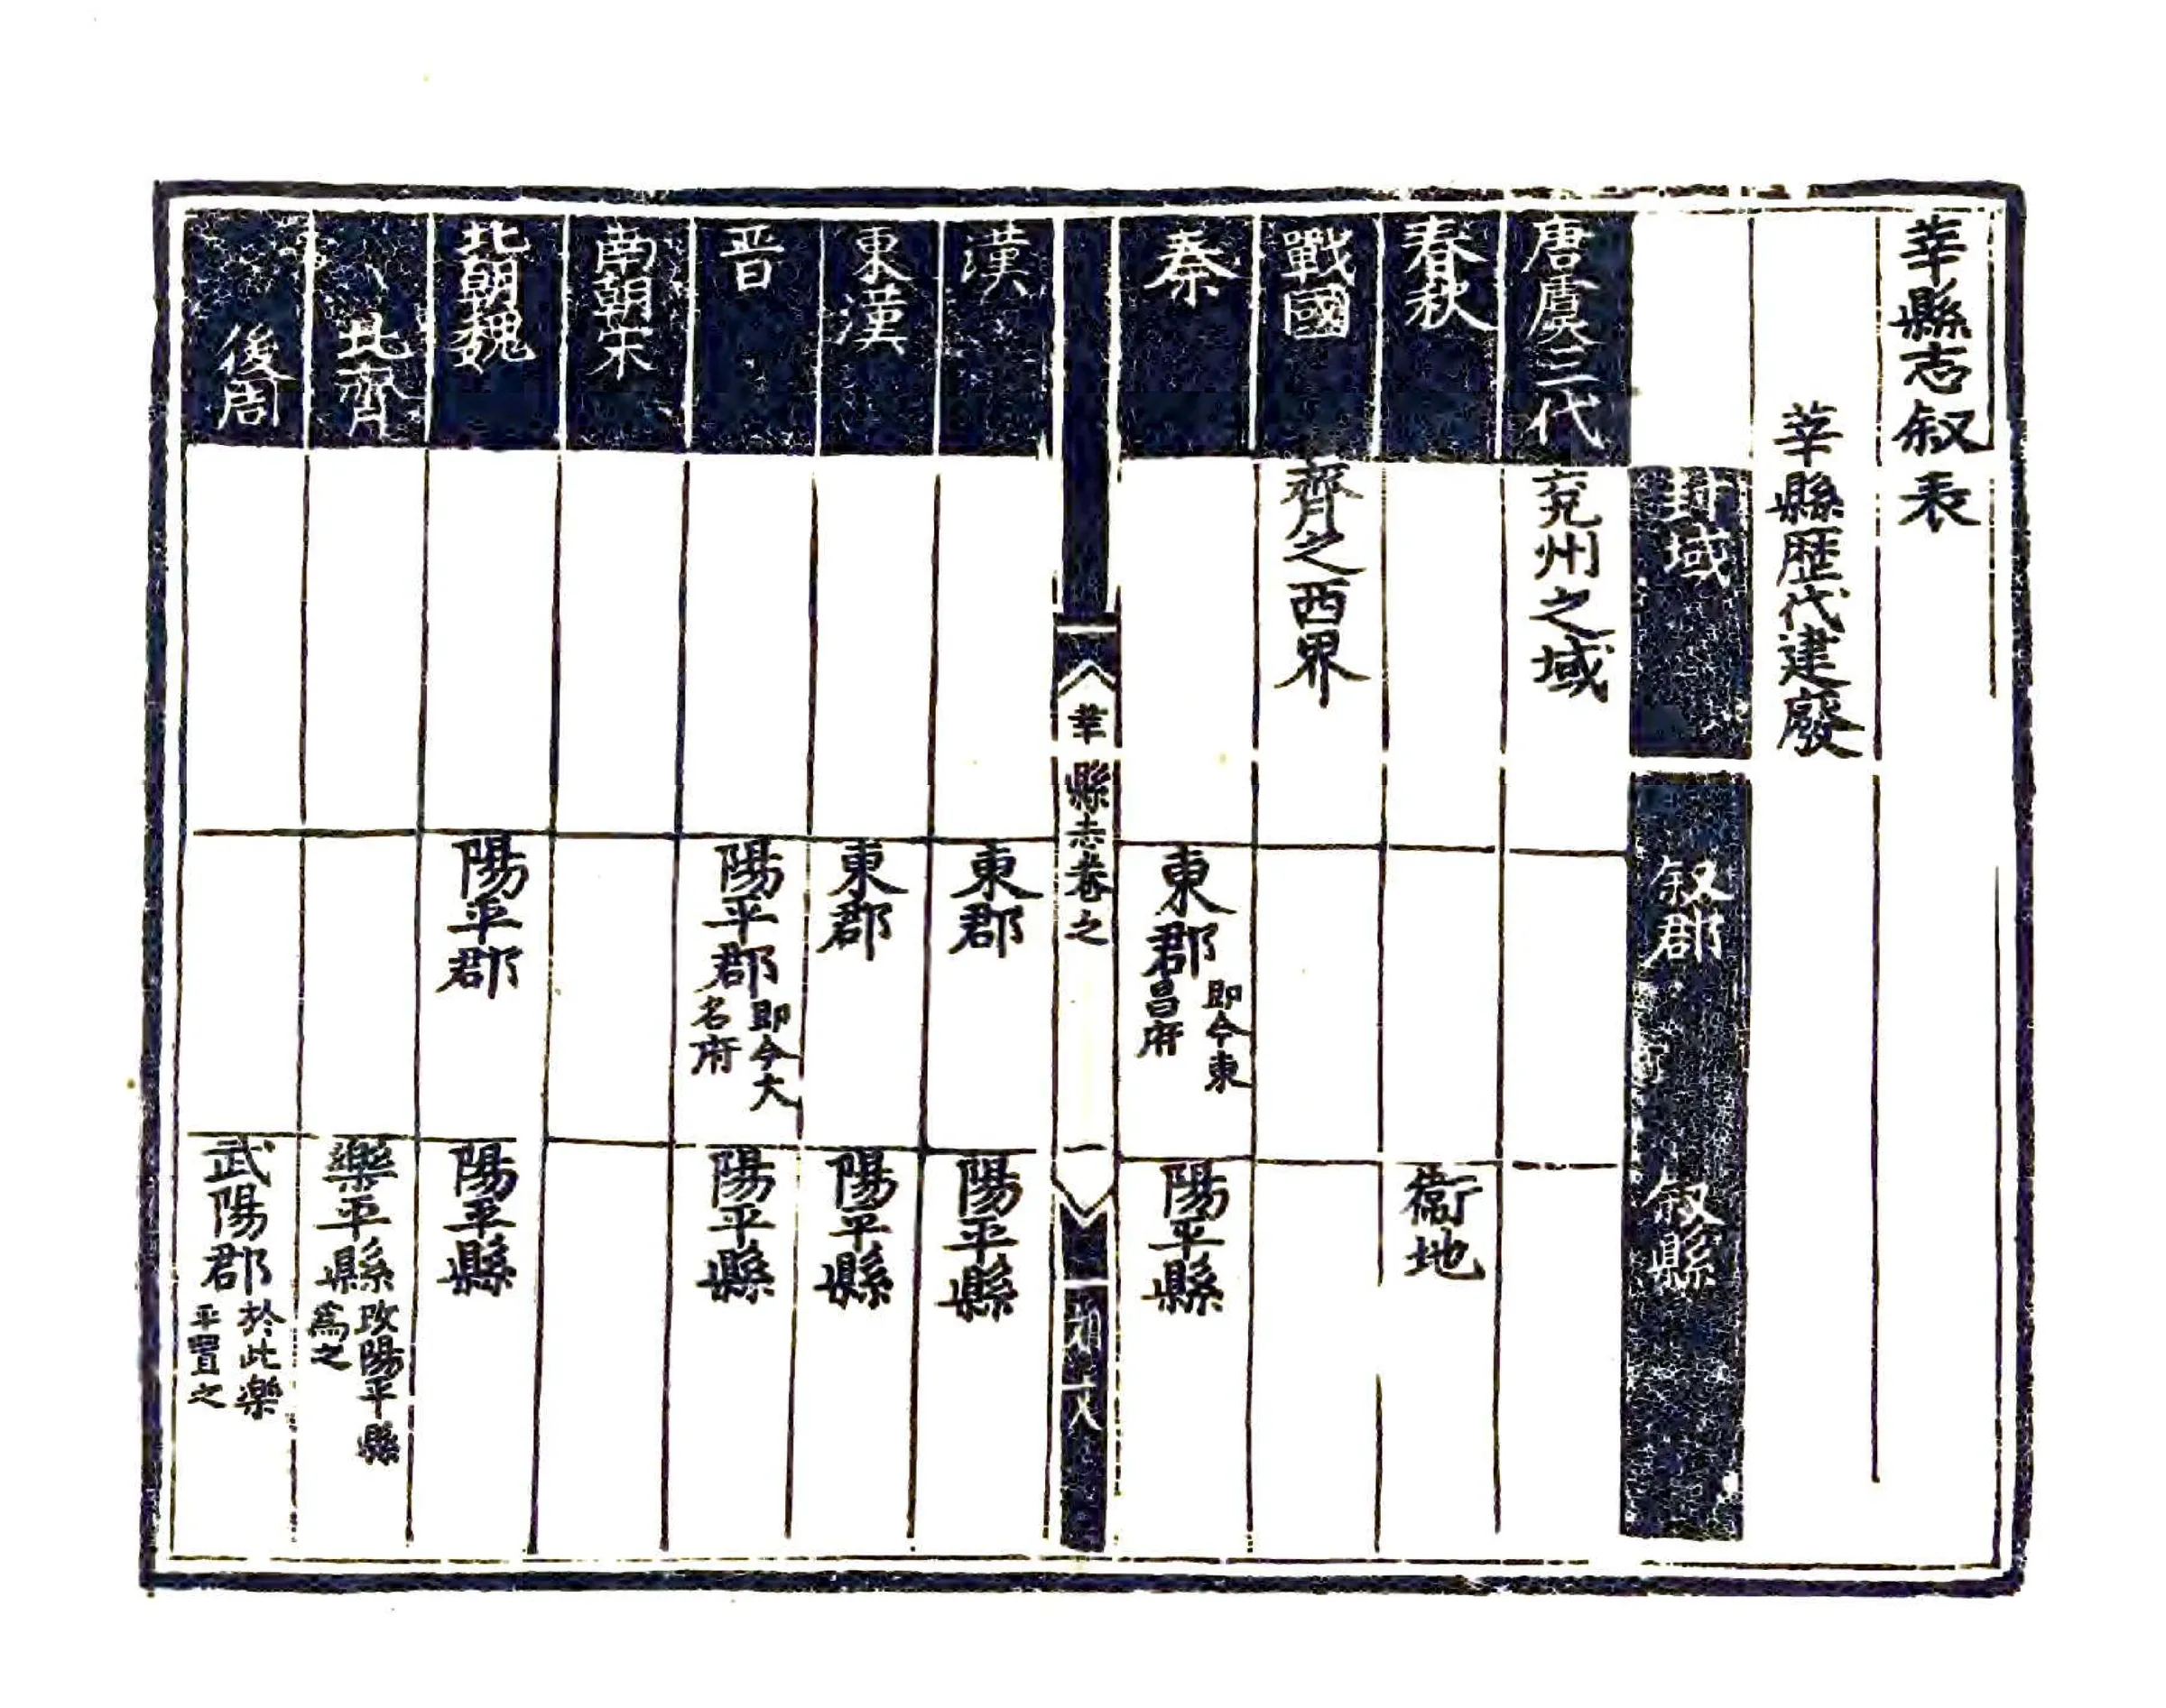 莘縣志叙表
莘縣歷代建廢
封域
叙郡
叙縣
唐虞三代
兗州之域
春秋
衞地
戰國
齊之西界
秦
東郡即今東
昌府
陽平縣
莘縣志卷之
一
漢
東郡
陽平縣
東漢
東郡
陽平縣
晋
陽平郡即今大
名府
陽平縣
南朝宋
北朝魏
陽平郡
陽平縣
北齊
樂平縣攺陽平縣
為之
後周
武陽郡於此樂
平置之